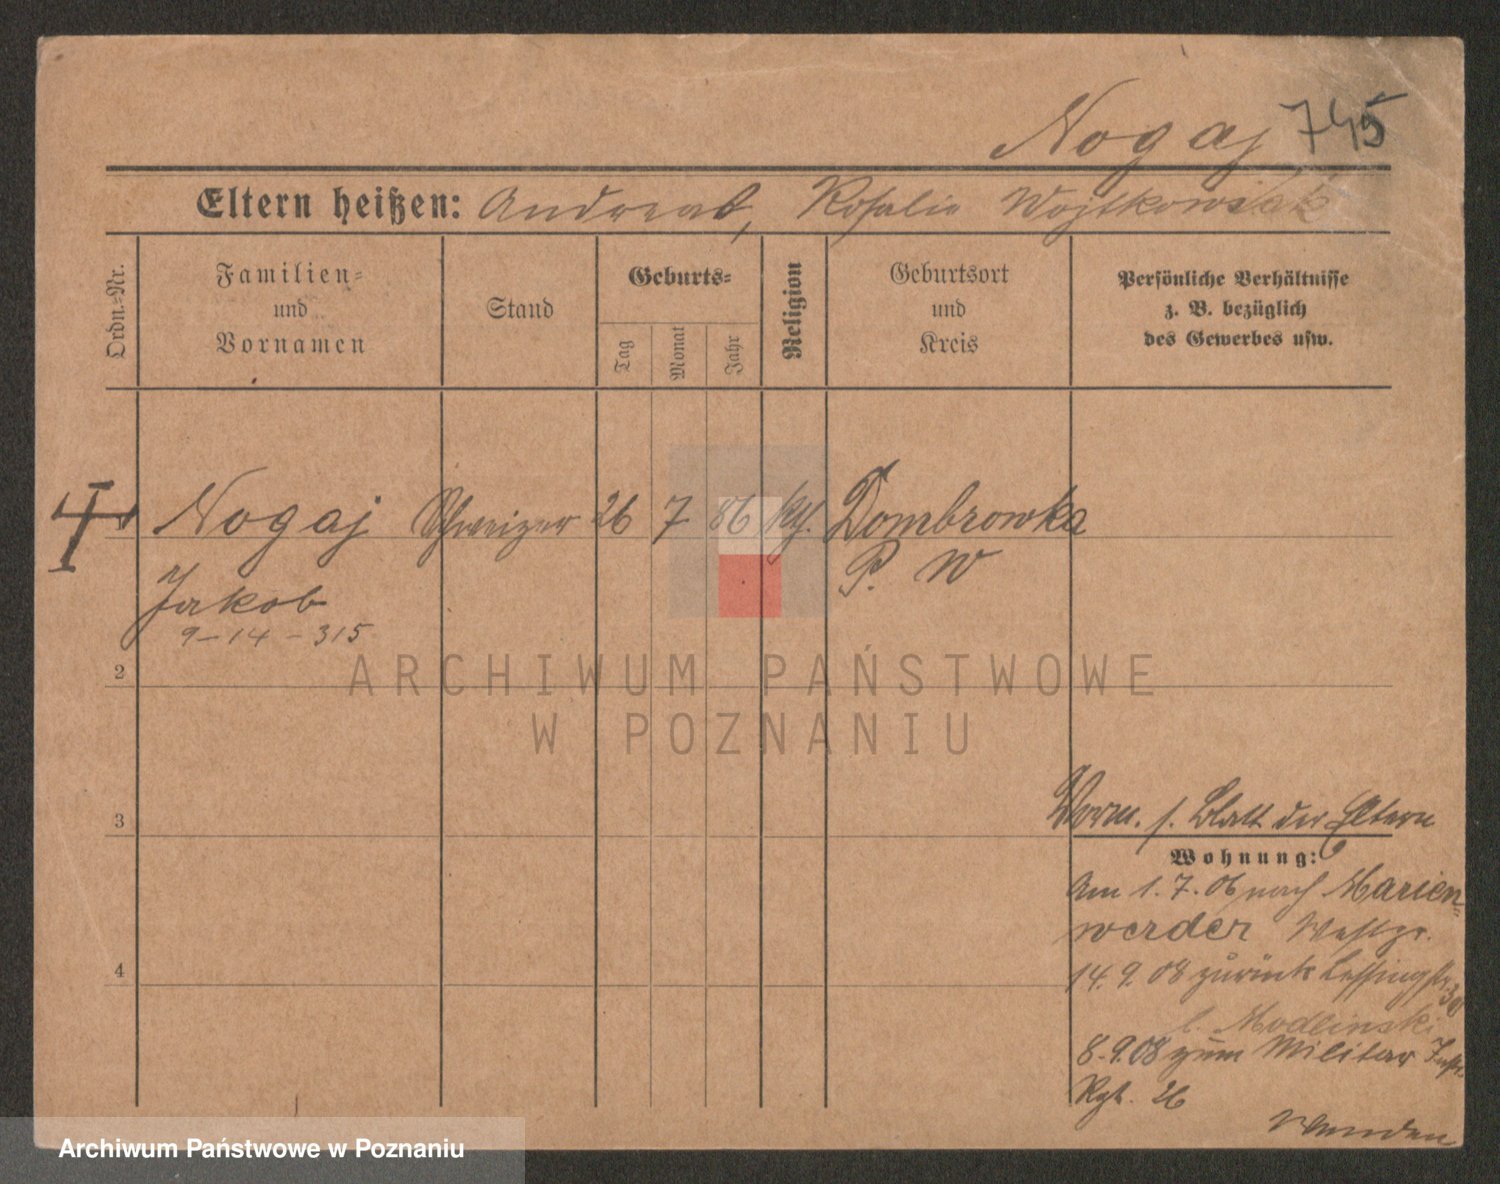 Nogaj 745
Eltern heißen: Andreas, Rosalie Wojtkowiak
Ordn.-Nr.
Familien-
und
Vornamen
Stand
Geburts-
Tag
Monat
Jahr
Religion
Geburtsort
und
Kreis
Persönliche Verhältnisse
z. B. bezüglich
des Gewerbes usw.
Nogaj Schweizer 26 7 86 kth. Dombrowka
Jakob P. W
9-14-315
2
3
4
Vorm. s. Blatt der Eltern
Wohnung:
Am 1.7.06 nach Marien-
werder Westpr.
14.9.08 zurück Lessingstr. 30
b. Modlinski
8.9.08 zum Militär Inf.
Rgt. 26
ARCHIWUM PAŃSTWOWE
W POZNANIU
Archiwum Państwowe w Poznaniu